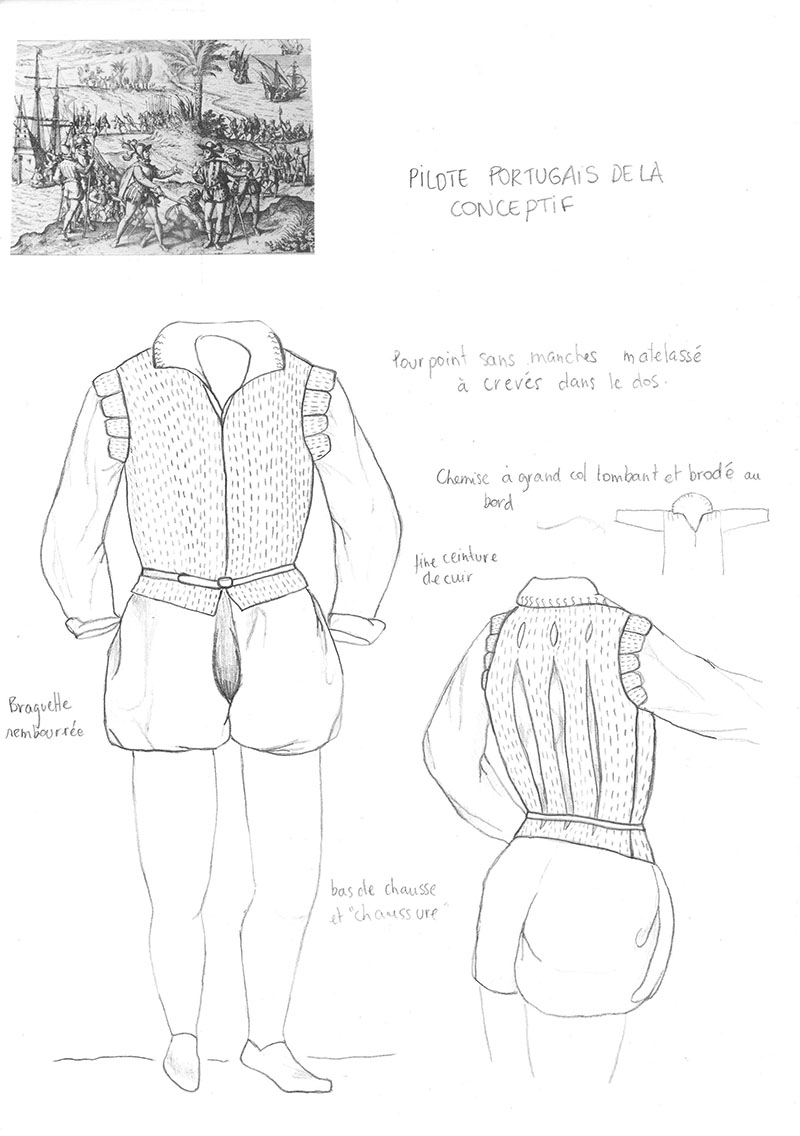 PILOTE PORTUGAIS DE LA
CONCEPTIF
Pourpoint sans manches matelassé
à crevés dans le dos.
Chemise à grand col tombant et brodé au
bord
fine ceinture
de cuir
Braguette
rembourrée
bas de chausse
et "chaussure"